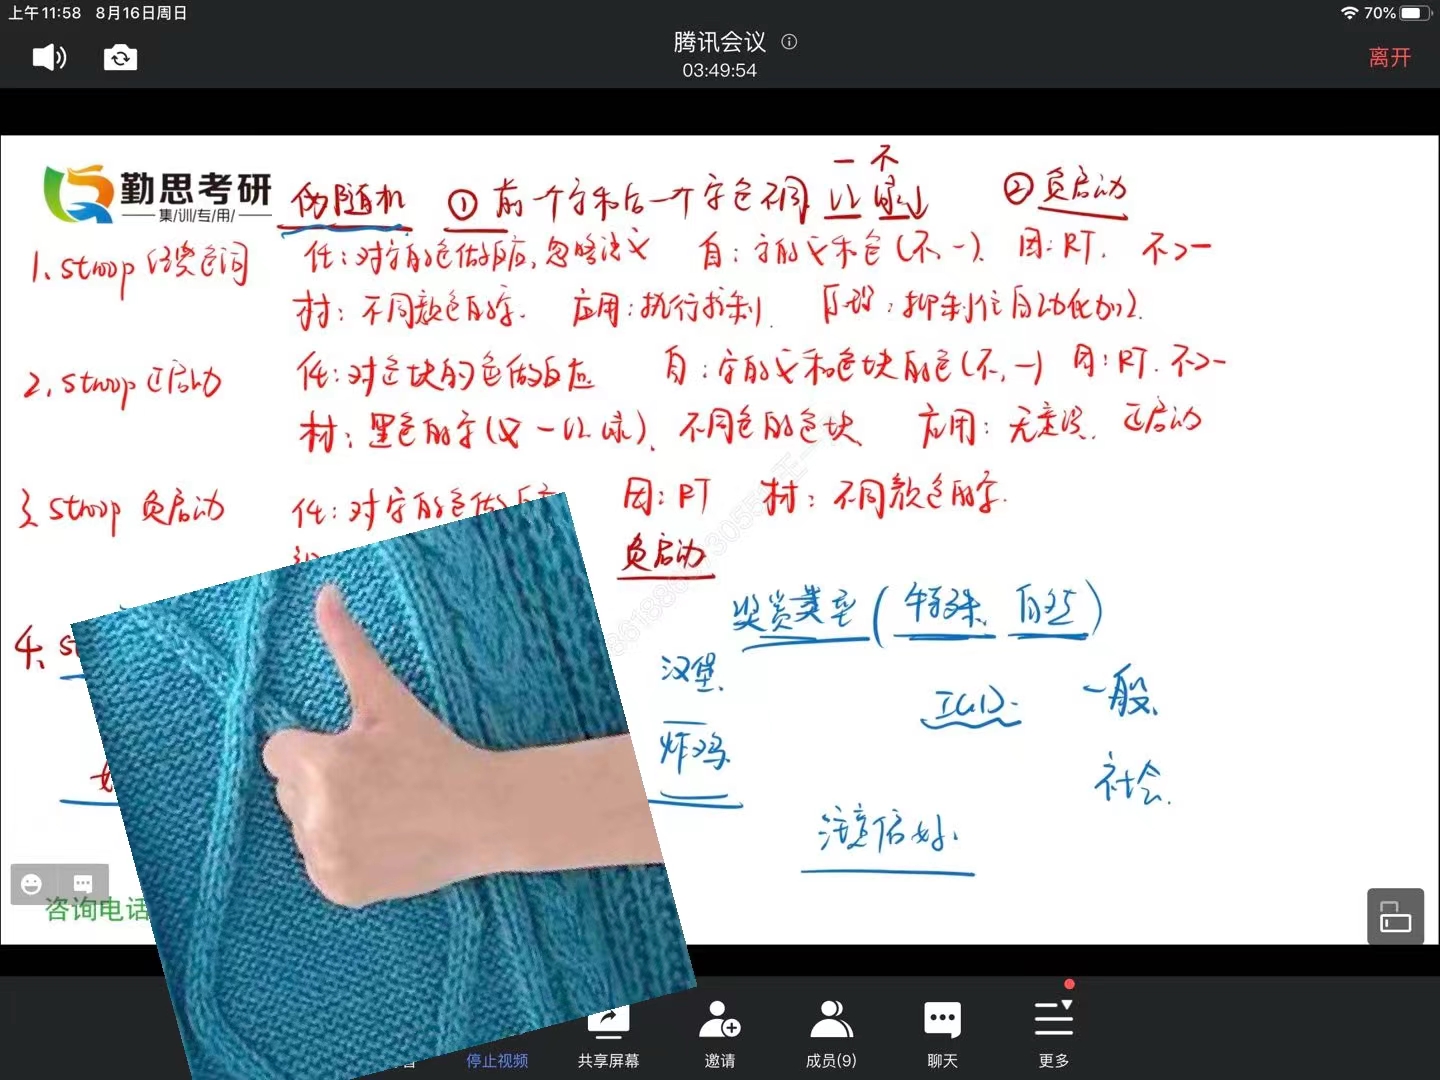 上午11:58 8月16日周日
70%
腾讯会议
03:49:54
离开
勤思考研
集/训/专/用/
伪随机 ① 前一个字和后一个字色不同 ② 负启动
一 不
1、stroop 经典色词 任：对字的色做反应，忽略语义 自：字的义和色(不,一) 因：RT. 不>一
材：不同颜色的字. 应用：执行抑制 自动化加工
2、stroop 正启动 任：对色块的色做反应 自：字的义和色块的色(不,一) 因：RT. 不>一
材：黑色的字(义一红绿)、不同色的色块 应用：无意识、正启动
3、stroop 负启动 任：对字的色做 因：RT 材：不同颜色的字.
负启动
奖赏类型(特殊、自然)
4、
汉堡、
一般、
炸鸡、
社会.
注意偏好.
咨询电话
停止视频
共享屏幕
邀请
成员(9)
聊天
更多